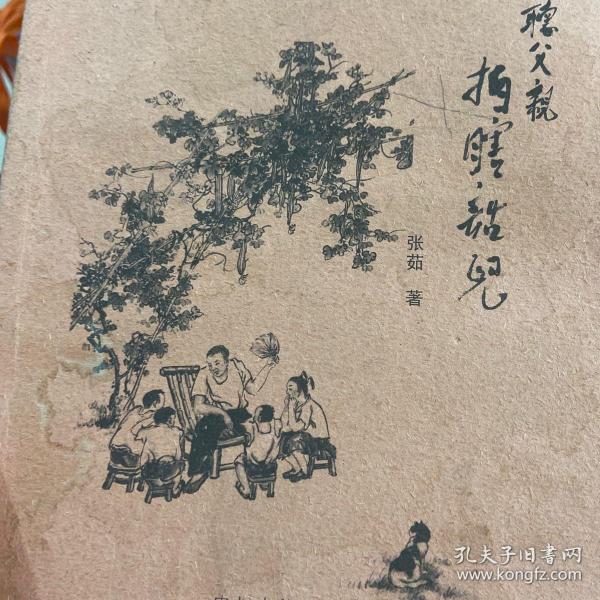 聽父親
拍瞎話兒
张茹 著
孔夫子旧书网
www.kongfz.com